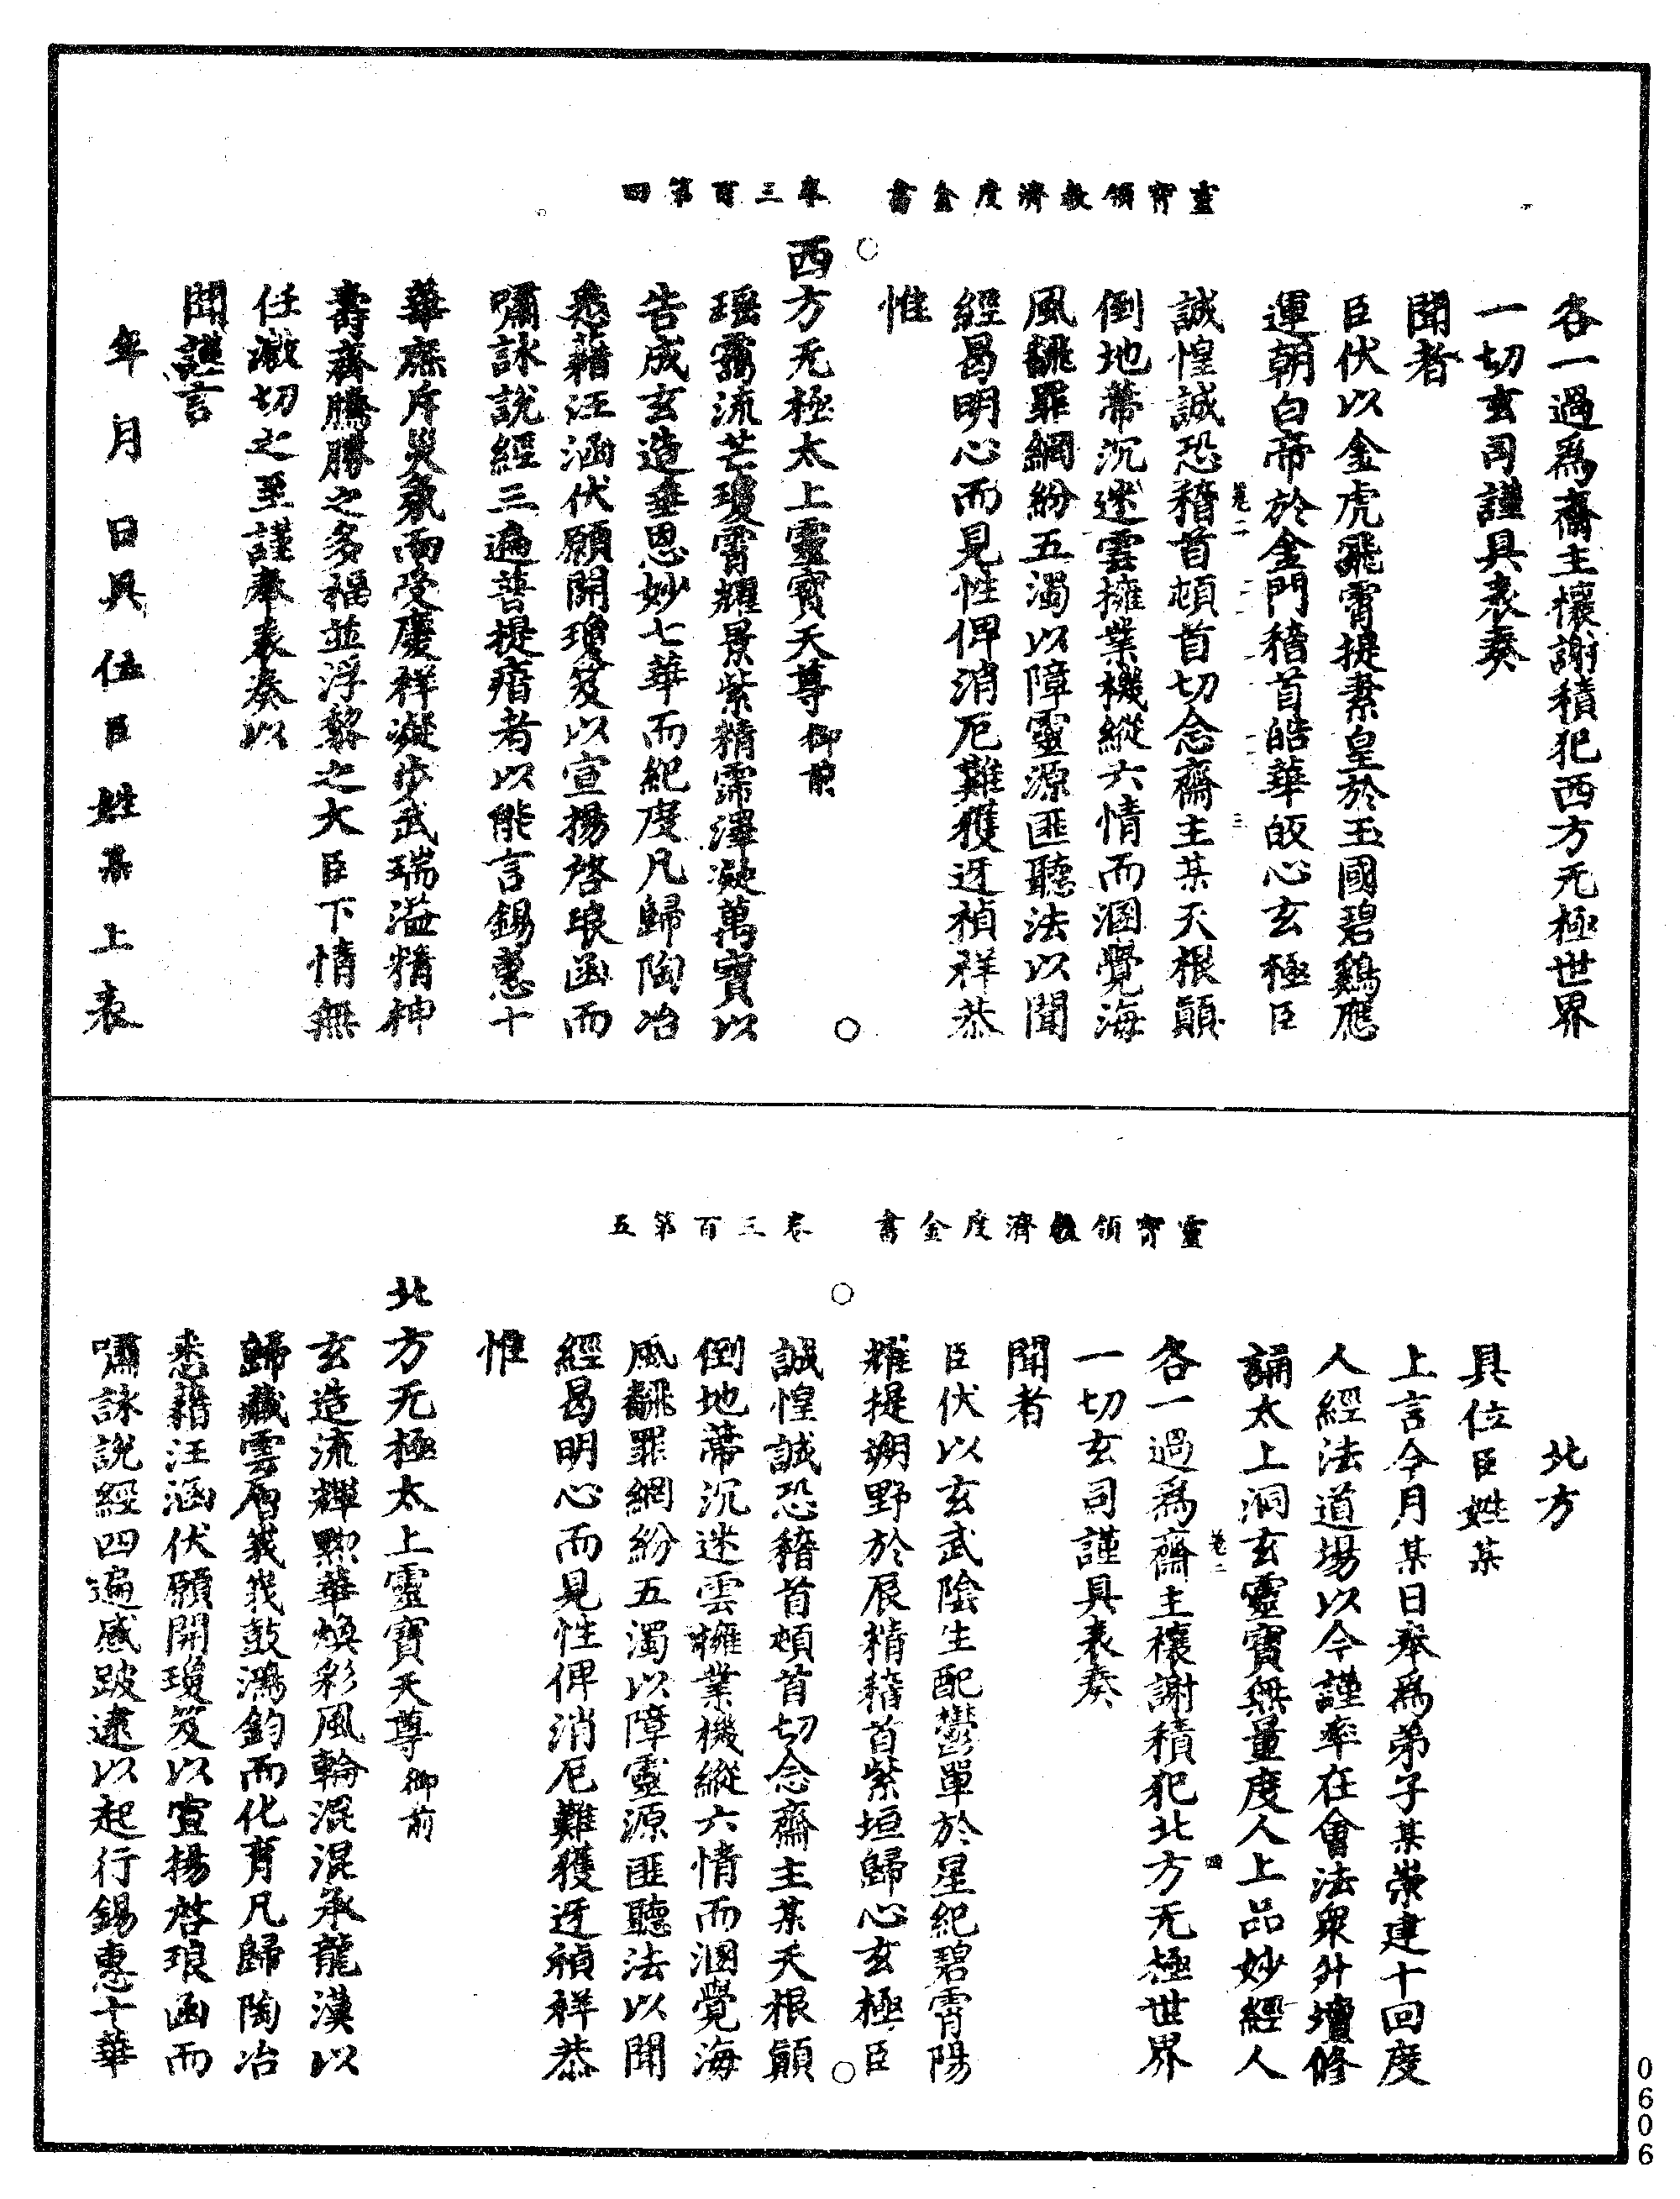 靈寶領教濟度金書　卷三百第四
各一過爲齋主禳謝積犯西方无極世界
一切玄司謹具表奏
聞者
臣伏以金虎飛霄提素皇於玉國碧鷄應
運朝白帝於金門稽首皓華皈心玄極臣
卷二　三
誠惶誠恐稽首頓首切念齋主某天根顚
倒地蒂沉迷雲擁業機縱六情而溷覺海
風翻罪網紛五濁以障靈源匪聽法以聞
經曷明心而見性俾消厄難獲迓禎祥恭
惟
西方无極太上靈寶天尊御前
瑶靄流芒瓊霄耀景紫精霈澤凝萬寶以
告成玄造垂恩妙七華而紀度凡歸陶冶
悉藉汪涵伏願開瓊笈以宣揚啓琅函而
嘯詠說經三遍菩提瘖者以能言錫惠十
華庶斥災氛而受慶祥凝步武瑞溢精神
壽齊騰勝之多福並浮黎之大臣下情無
任激切之至謹奉表奏以
聞謹言
年月日具位臣姓某上表
靈寶領教濟度金書　卷三百第五
北方
具位臣姓某
上言今月某日奉爲弟子某崇建十回度
人經法道場以今謹率在會法衆升壇修
誦太上洞玄靈寶無量度人上品妙經人
卷二　四
各一過爲齋主禳謝積犯北方无極世界
一切玄司謹具表奏
聞者
臣伏以玄武陰生配鬱單於星紀碧霄陽
耀提朔野於辰精稽首紫垣歸心玄極臣
誠惶誠恐稽首頓首切念齋主某天根顚
倒地蒂沉迷雲擁業機縱六情而溷覺海
風翻罪網紛五濁以障靈源匪聽法以聞
經曷明心而見性俾消厄難獲迓禎祥恭
惟
北方无極太上靈寶天尊御前
玄造流輝黙華煥彩風輪混混承龍漢以
歸藏雲層峩峩鼓鴻鈞而化育凡歸陶冶
悉藉汪涵伏願開瓊笈以宣揚啓琅函而
嘯詠說經四遍感跛逮以起行錫惠十華
0606